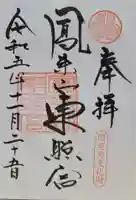 奉拝
鳳来山東照宮
令和五年十一月二十五日